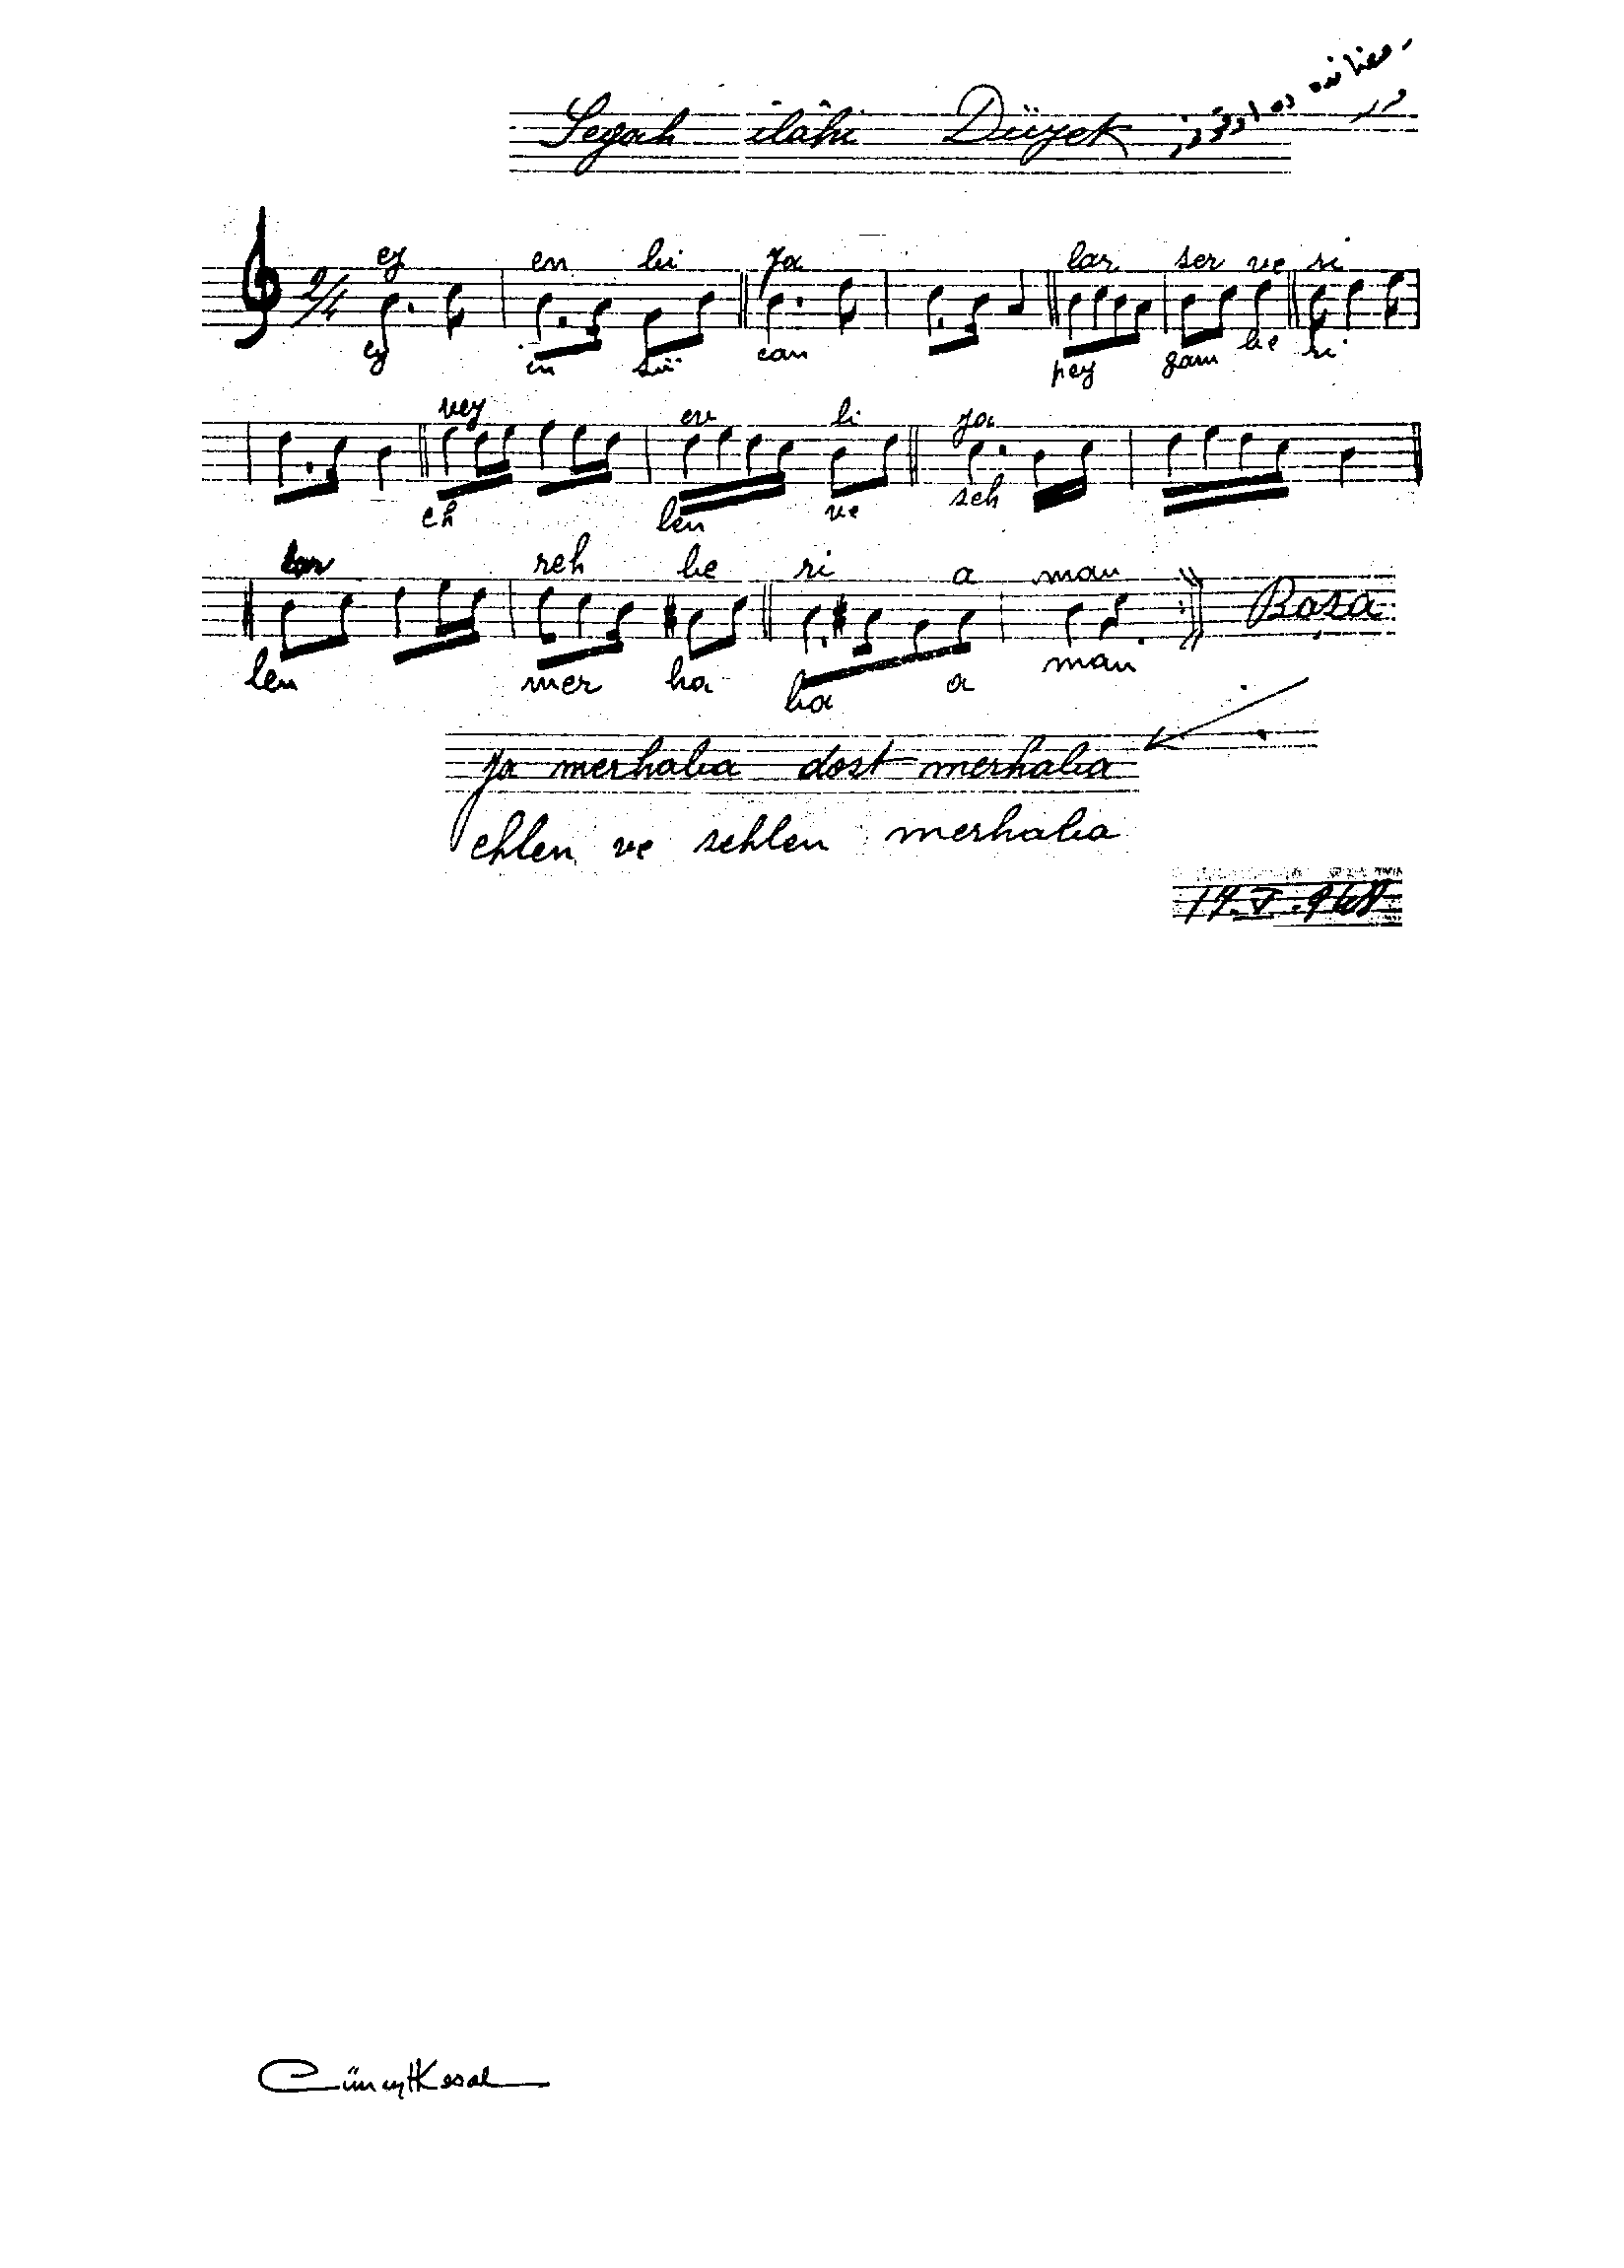 Segah ilâhi Düyek
2/4
ey en bi ya lar ser ve ri
ey in sü can pey gam be ri
vey ev li ya
eh len ve seh
lar reh be ri a man
len mer ha ba a man
ya merhaba dost merhaba
ehlen ve sehlen merhaba
Cüneyt Kosal